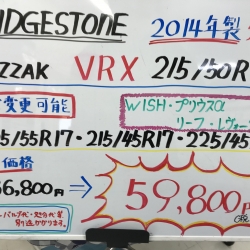 IDGESTONE 2014年製
ZZAK VRX 215/50R
変更可能
WISH・プリウスα
リーフ・レヴォー
5/55R17・215/45R17・225/45
価格
6,800円 ⇒ 59,800円
バルブ代・処分代等
別途かかります。